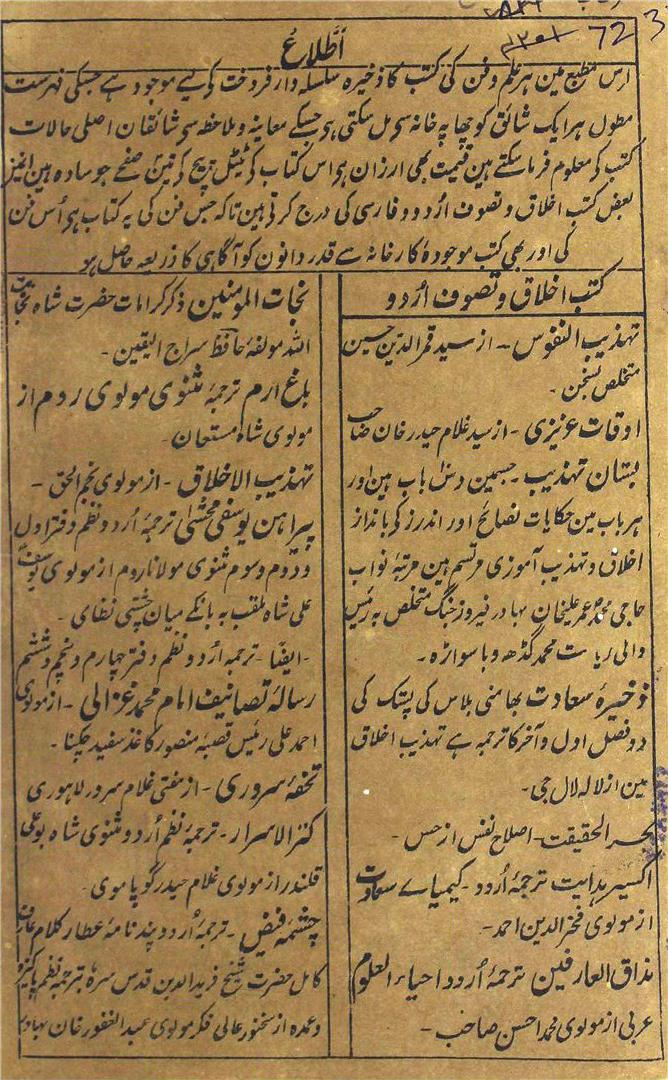 72
3
۱۳۰۱
اطّلاع
اس مطبع مین ہر علم و فن کی کتب کا ذخیرہ سلسلہ وار فروخت کے لیے موجود ہے جسکی فہرست
مطول ہر ایک شائق کو چھاپہ خانہ سے مل سکتی ہے جسکے معاینہ و ملاحظہ سے شائقان اصلی حالات
کتب کے معلوم فرما سکتے ہین قیمت بھی ارزان ہے اس کتاب کے ٹیٹل پیج کے تین صفحے جو سادہ ہین انمیز
بعض کتب اخلاق و تصوف اردو و فارسی کی درج کرتے ہین تاکہ جس فن کی یہ کتاب ہے اُس فن
کی اور بھی کتب موجودہ کارخانہ سے قدردانون کو آگاہی کا ذریعہ حاصل ہو
کتب اخلاق و تصوف اردو
تہذیب النفوس - از سید قمر الدین حسین
متخلص بسخن -
اوقات عزیزی - از سید غلام حیدر خان صاحب
بستان تہذیب - جسمین دس باب ہین اور
ہر باب مین حکایات نصائح اور اندرز کے بانداز
اخلاق و تہذیب آموزی مرتسم ہین مرتبہ نواب
حاجی محمد عمر علیخان بہادر فیروز جنگ متخلص بہ رئیس
والی ریاست محمد گڈھ و باسواڑہ -
ذخیرۂ سعادت بھامنی بلاس کی پشتک کی
دو فصل اول و آخر کا ترجمہ ہے تہذیب اخلاق
مین از لالہ لال جی -
بحر الحقیقت - اصلاح نفس از حس -
اکسیر ہدایت ترجمۂ اردو - کیمیاے سعادت
از مولوی فخر الدین احمد -
مذاق العارفین ترجمۂ اردو احیاء العلوم
عربی از مولوی محمد احسن صاحب -
نجات المومنین ذکر کرامات حضرت شاہ نجات
اللہ مولفۂ حافظ سراج الیقین -
باغ ارم ترجمۂ مثنوی مولوی روم از
مولوی شاہ مستعان -
تہذیب الاخلاق - از مولوی نجم الحق -
پیراہن یوسفی محشٰی ترجمۂ اردو نظم دفتر اول
و دوم و سوم مثنوی مولانا روم از مولوی یوسف
علی شاہ ملقب بہ بانکے میان چشتی نظامی -
ایضًا - ترجمہ اردو نظم دفتر چہارم و پنجم و ششم -
رسالۂ تصانیف امام محمد غزالی - از مولوی
احمد علی رئیس قصبہ منصور کاغذ سفید چکنا -
تحفۂ سروری - از مفتی غلام سرور لاہوری
کنز الاسرار - ترجمۂ نظم اردو مثنوی شاہ بوعلی
قلندر از مولوی غلام حیدر گوپاموی -
چشمۂ فیض - ترجمۂ اردو پندنامۂ عطار کلام عارف
کامل حضرت شیخ فرید الدین قدس سرہ ترجمہ نظم پاکیزہ
و عمدہ از سخنور عالی فکر مولوی عبد الغفور خان بہادر